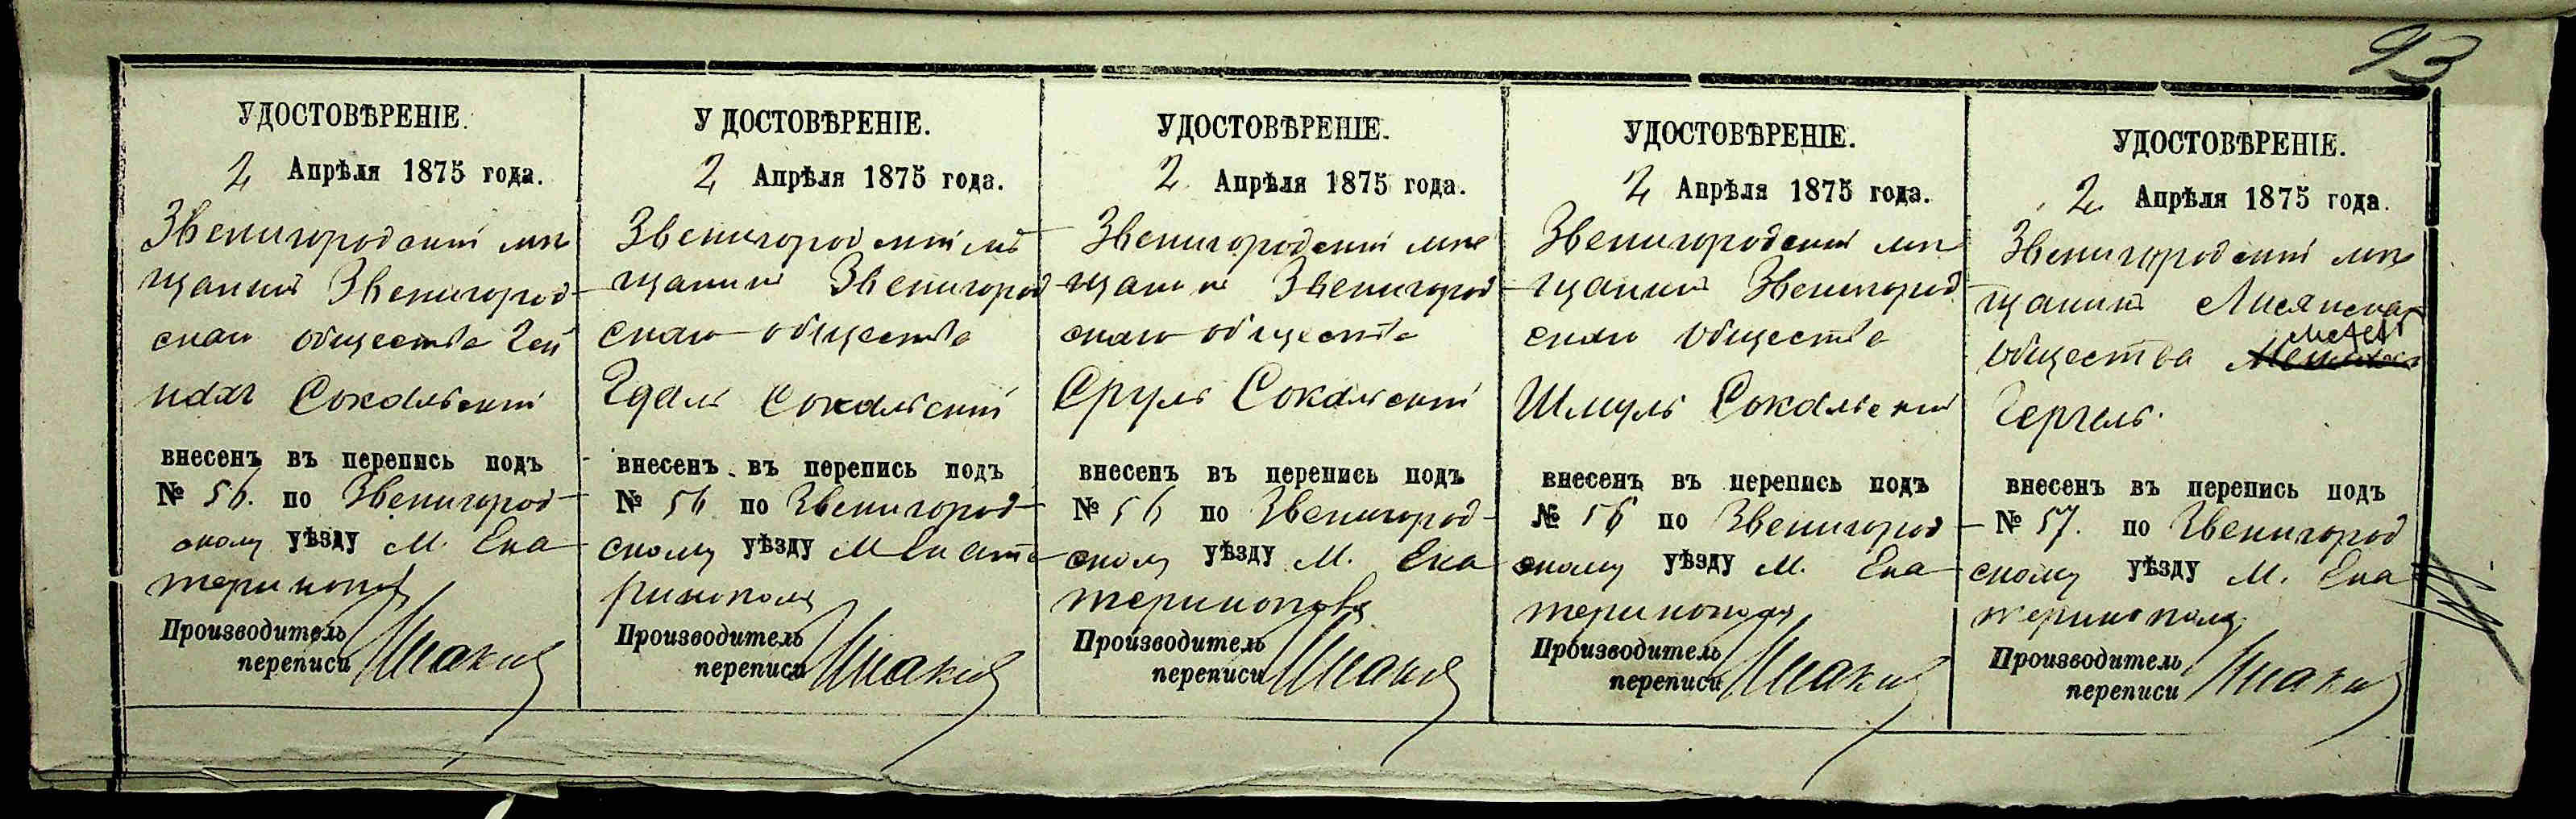 93
УДОСТОВѢРЕНІЕ.
2 Апрѣля 1875 года.
Звенигородскій мѣ
щанинъ Звенигород-
скаго общества Гей
нахъ Сокальскій
внесенъ въ перепись подъ
№ 56. по Звенигород-
скому уѣзду М. Ека
теринопол
Производитель
переписи
У ДОСТОВѢРЕНІЕ.
2 Апрѣля 1875 года.
Звенигородскій мѣ
щанинъ Звенигород
скаго общества
Гдаль Сокальскій
внесенъ въ перепись подъ
№ 56 по Звенигород-
скому уѣзду М Екате
ринополя
Производитель
переписи
УДОСТОВѢРЕНІЕ.
2 Апрѣля 1875 года.
Звенигородскій мѣ
щанинъ Звенигород
скаго общества
Сруль Сокальскій
внесенъ въ перепись подъ
№ 56 по Звенигород-
скому уѣзду М. Ека
теринополя
Производитель
переписи
УДОСТОВѢРЕНІЕ.
2 Апрѣля 1875 года.
Звенигородскій мѣ
щанинъ Звенигород
скаго общества
Шмуль Сокальскій
внесенъ въ перепись подъ
№ 56 по Звенигород-
скому уѣзду М. Ека
теринополя
Производитель
переписи
УДОСТОВѢРЕНІЕ.
2 Апрѣля 1875 года.
Звенигородскій мѣ
щанинъ Лисянскаго
общества
Гергель.
внесенъ въ перепись подъ
№ 57. по Звенигород
скому уѣзду М. Ека
теринополя
Производитель
переписи